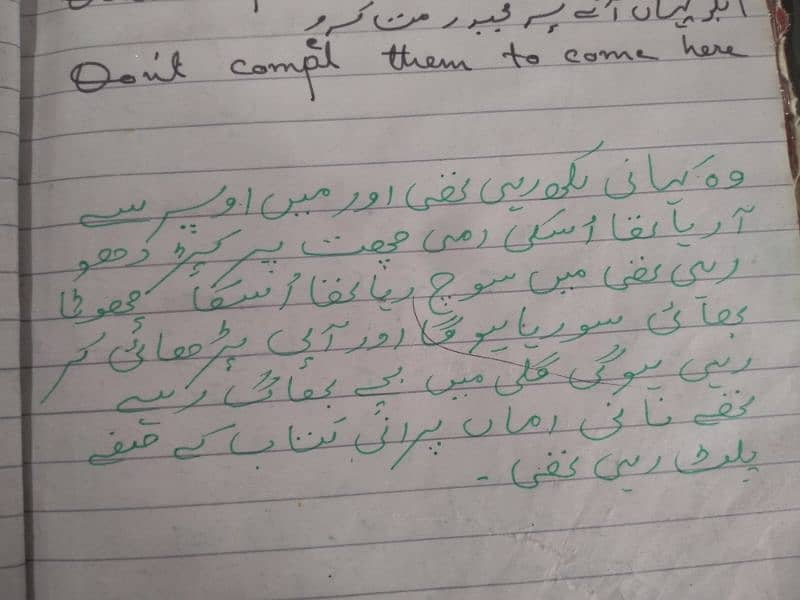 انکو یہاں آنے پر مجبور مت کرو
Don't compel them to come here
وہ کہانی لکھ رہی تھی اور میں اوپر سے
آ رہا تھا اُسکی امی چھت پر کپڑے دھو
رہی تھی میں سوچ رہا تھا اُسکا چھوٹا
بھائی سو رہا ہوگا اور آپی پڑھائی کر
رہی ہوگی گلی میں بچے بھاگ رہے
تھے نانی اماں پرانی کتاب کے صفحے
پلٹ رہی تھی -